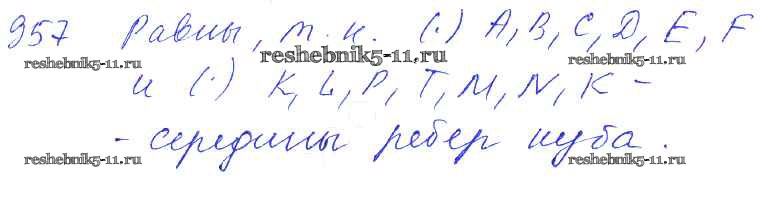 957 Равны, т.к. (·) A, B, C, D, E, F
reshebnik5-11.ru reshebnik5-11.ru reshebnik5-11.ru
и (·) K, L, P, T, M, N, K –
– середины ребер куба.
reshebnik5-11.ru reshebnik5-11.ru